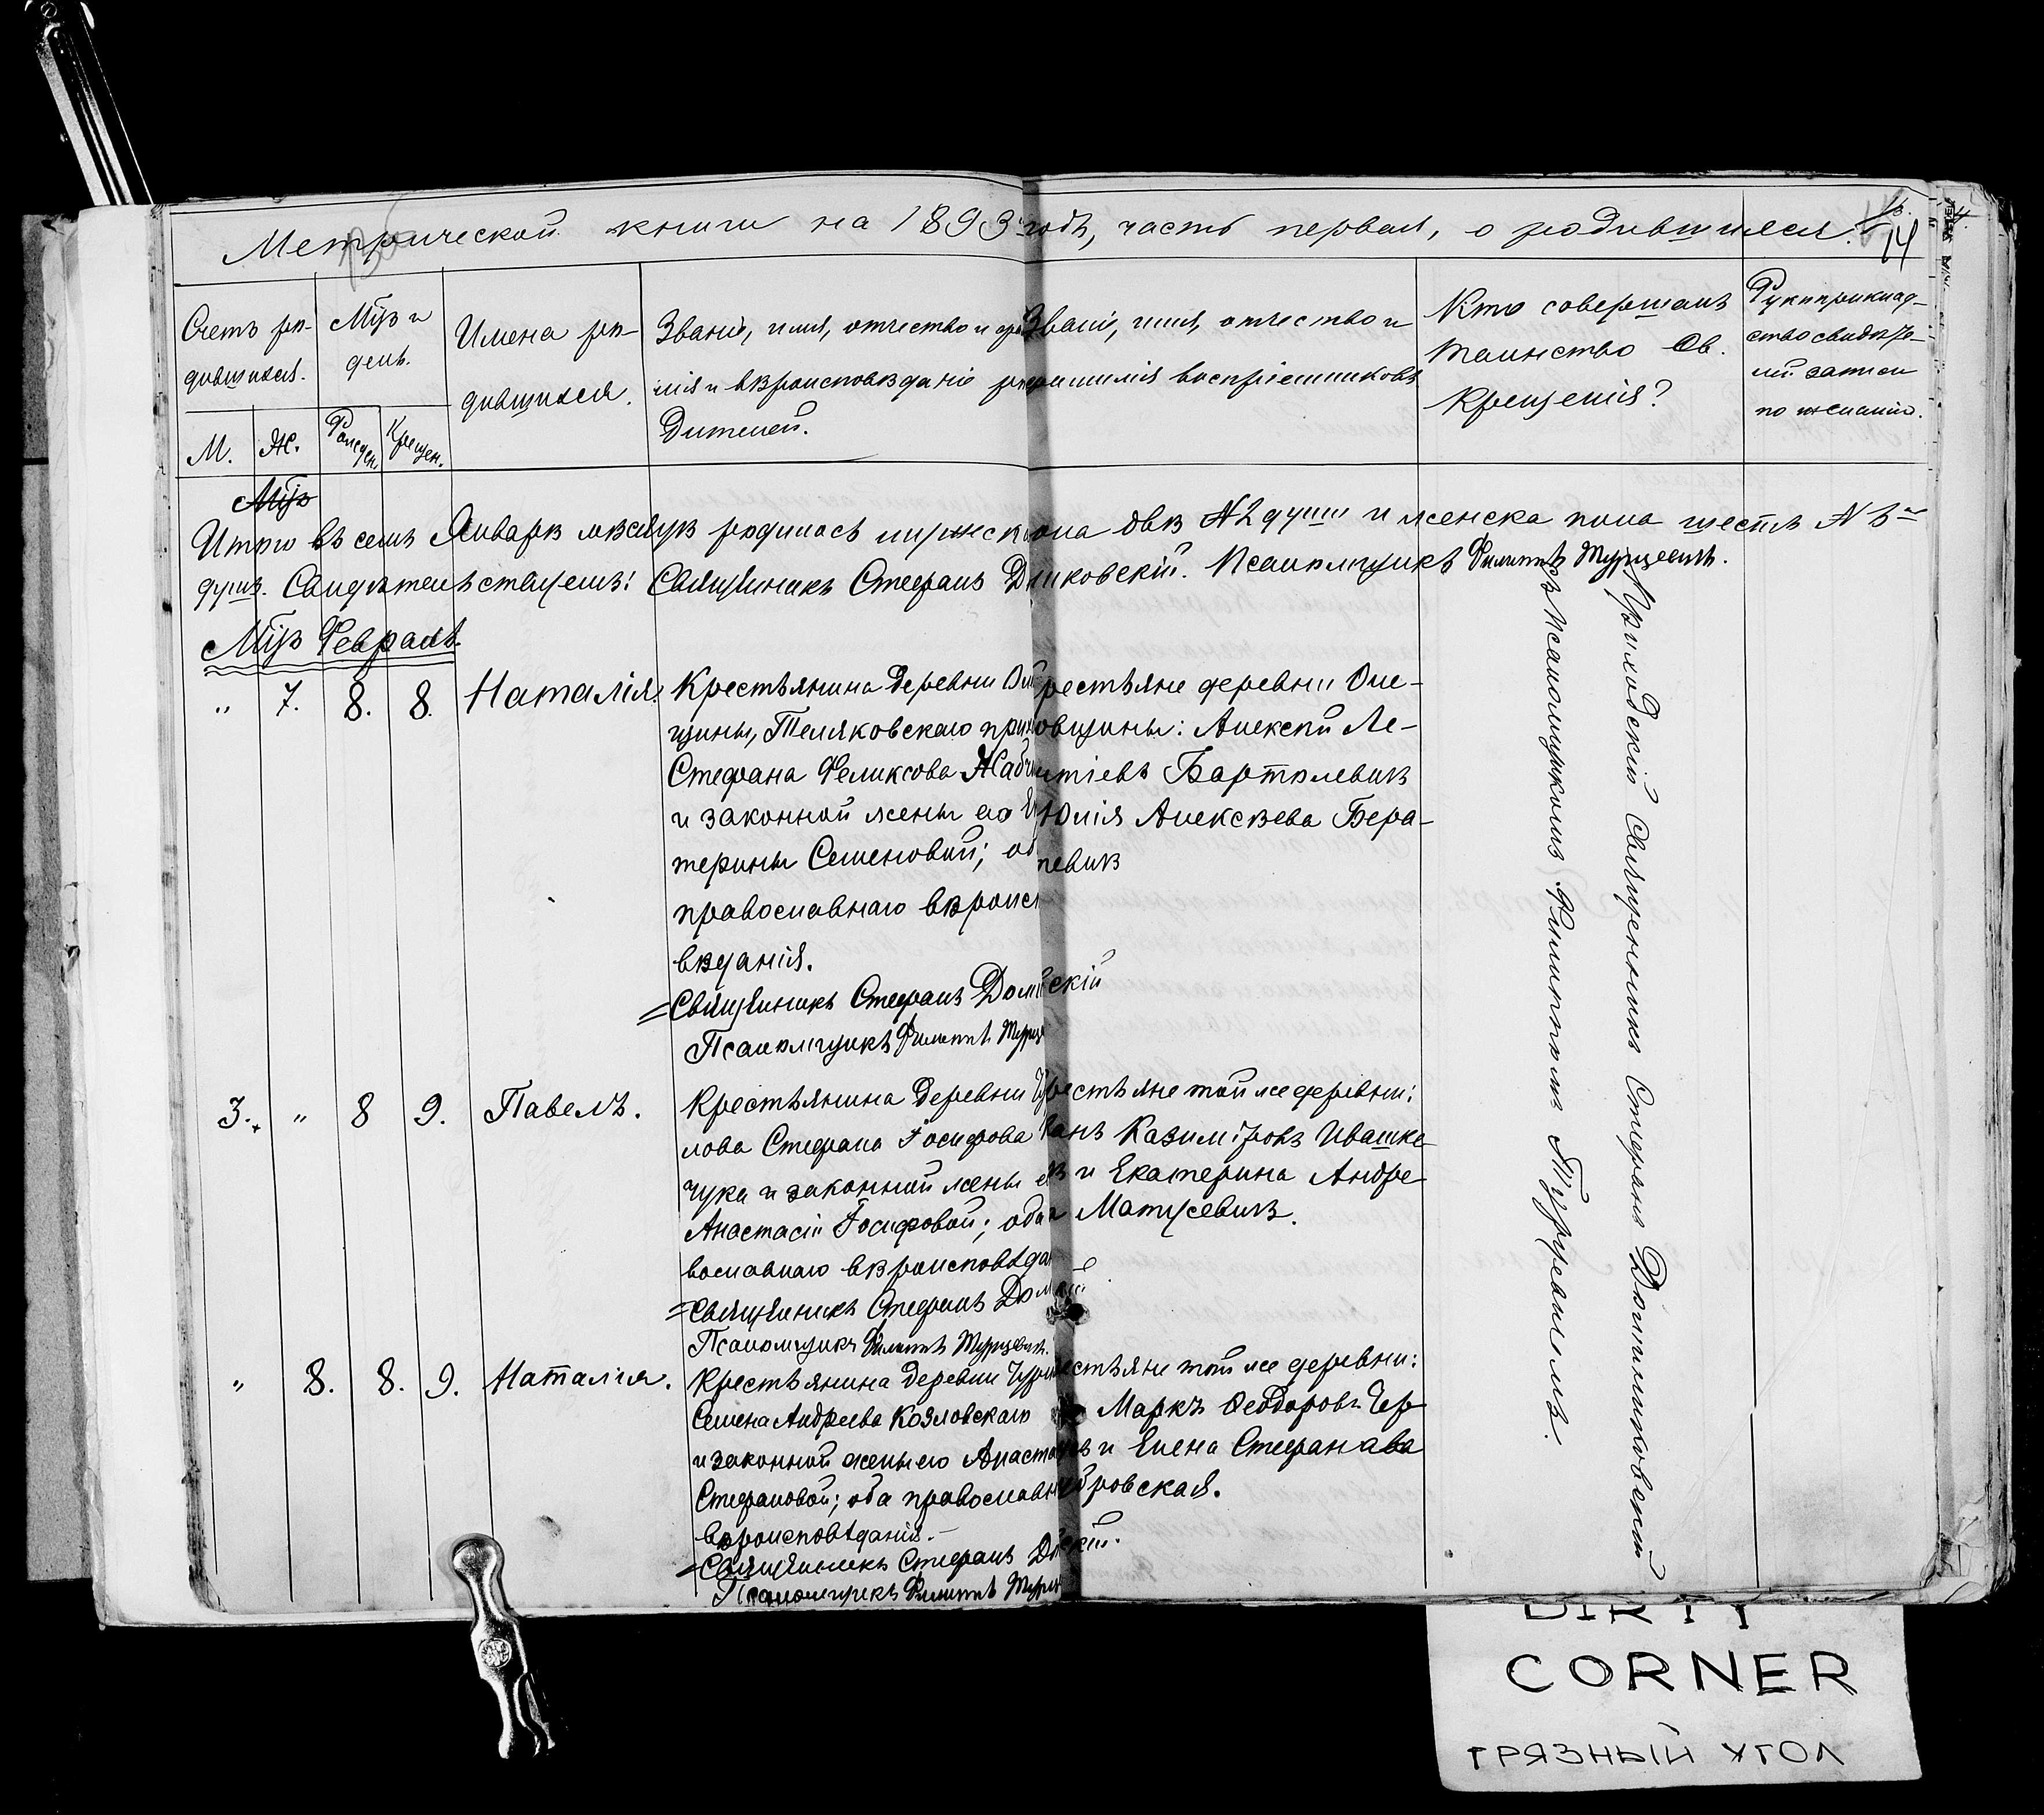 Метрической книги на 1893 годъ, часть первая, о родившихся.
14
Счетъ ро-
дившихся.
М.
Ж.
Мѣсяцъ и
день.
Рожден.
Крещен.
Имена ро-
дившихся.
Званіе, имя, отчество и фами-
лія и вѣроисповѣданіе ро-
дителей.
Званіе, имя, отчество и
фамилія воспріемниковъ
Кто совершалъ
таинство Св.
Крещенія?
Рукоприклад-
ство свидѣте-
лей записи
по желанію.
Итого въ семъ Январѣ мѣсяцѣ родилось мужска пола двѣ № 2 души и женска пола шесть №
душъ. Свидѣтельствуемъ: Священникъ Стефанъ Псаломщикъ Филиппъ Турцевичъ.
Мцъ Февраль.
" 7. 8. 8. Наталія.
Крестьянина деревни
щины, Теляковскаго
Стефана Феликсова
и законной жены его
терины Семеновой;
православнаго вѣроисп
вѣданія.
Священникъ Стефанъ
Псаломщикъ Филиппъ
рестьяне деревни Оле-
овщины: Алексѣй Ле-
онтіевъ Бартолевичъ
Юлія Алексѣева Бера-
невичъ
3. " 8 9. Павелъ.
Крестьянина деревни
лова Стефана Іосифова
чука и законной жены
Анастасіи Іосифовой;
вославнаго вѣроисповѣда
Священникъ Стефанъ
Псаломщикъ Филиппъ Турцевичъ.
рестьяне той же деревни:
Казиміровъ Ивашке
и Екатерина Андре
Матусевичъ.
" 8. 8. 9. Наталія.
Крестьянина деревни
Семена Андреева Козловскаго
и законной жены его Анаст
Стефановой; оба православн
вѣроисповѣданія.
Священникъ Стефанъ
Псаломщикъ Филиппъ
естьяне той же деревни:
Маркъ Феодоровъ Чер
и Елена Стефанава
бровская.
Приходскій Священникъ Стефанъ
съ Псаломщикомъ Филиппомъ Турцевичемъ.
DIRTY
CORNER
ГРЯЗНЫЙ УГОЛ